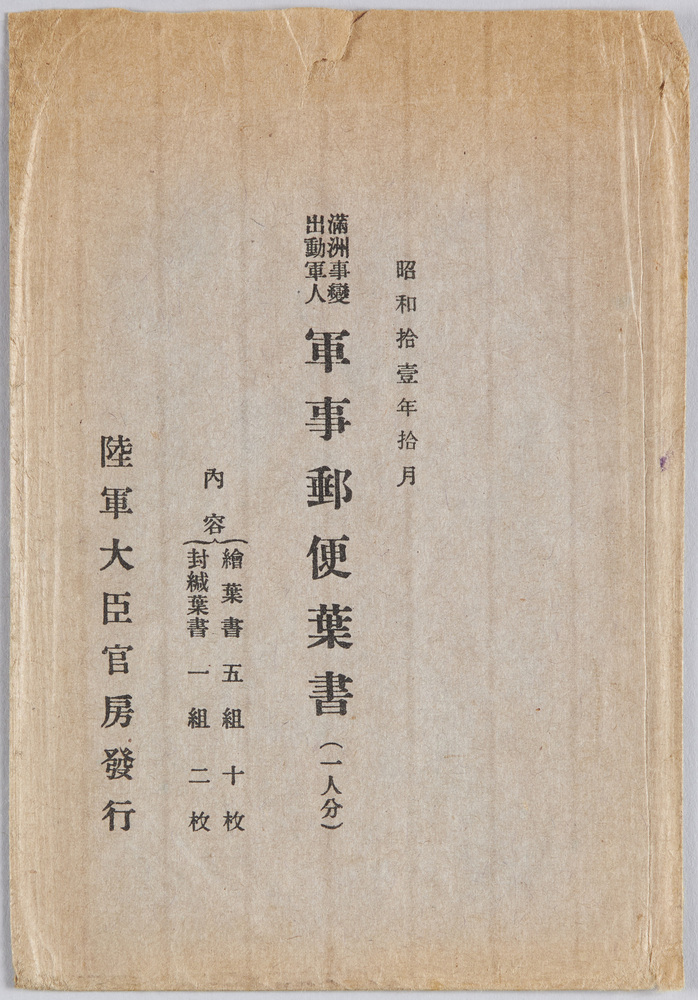 昭和拾壹年拾月
滿洲事變
出動軍人
軍事郵便葉書（一人分）
內容
繪葉書 五組 十枚
封緘葉書 一組 二枚
陸軍大臣官房發行